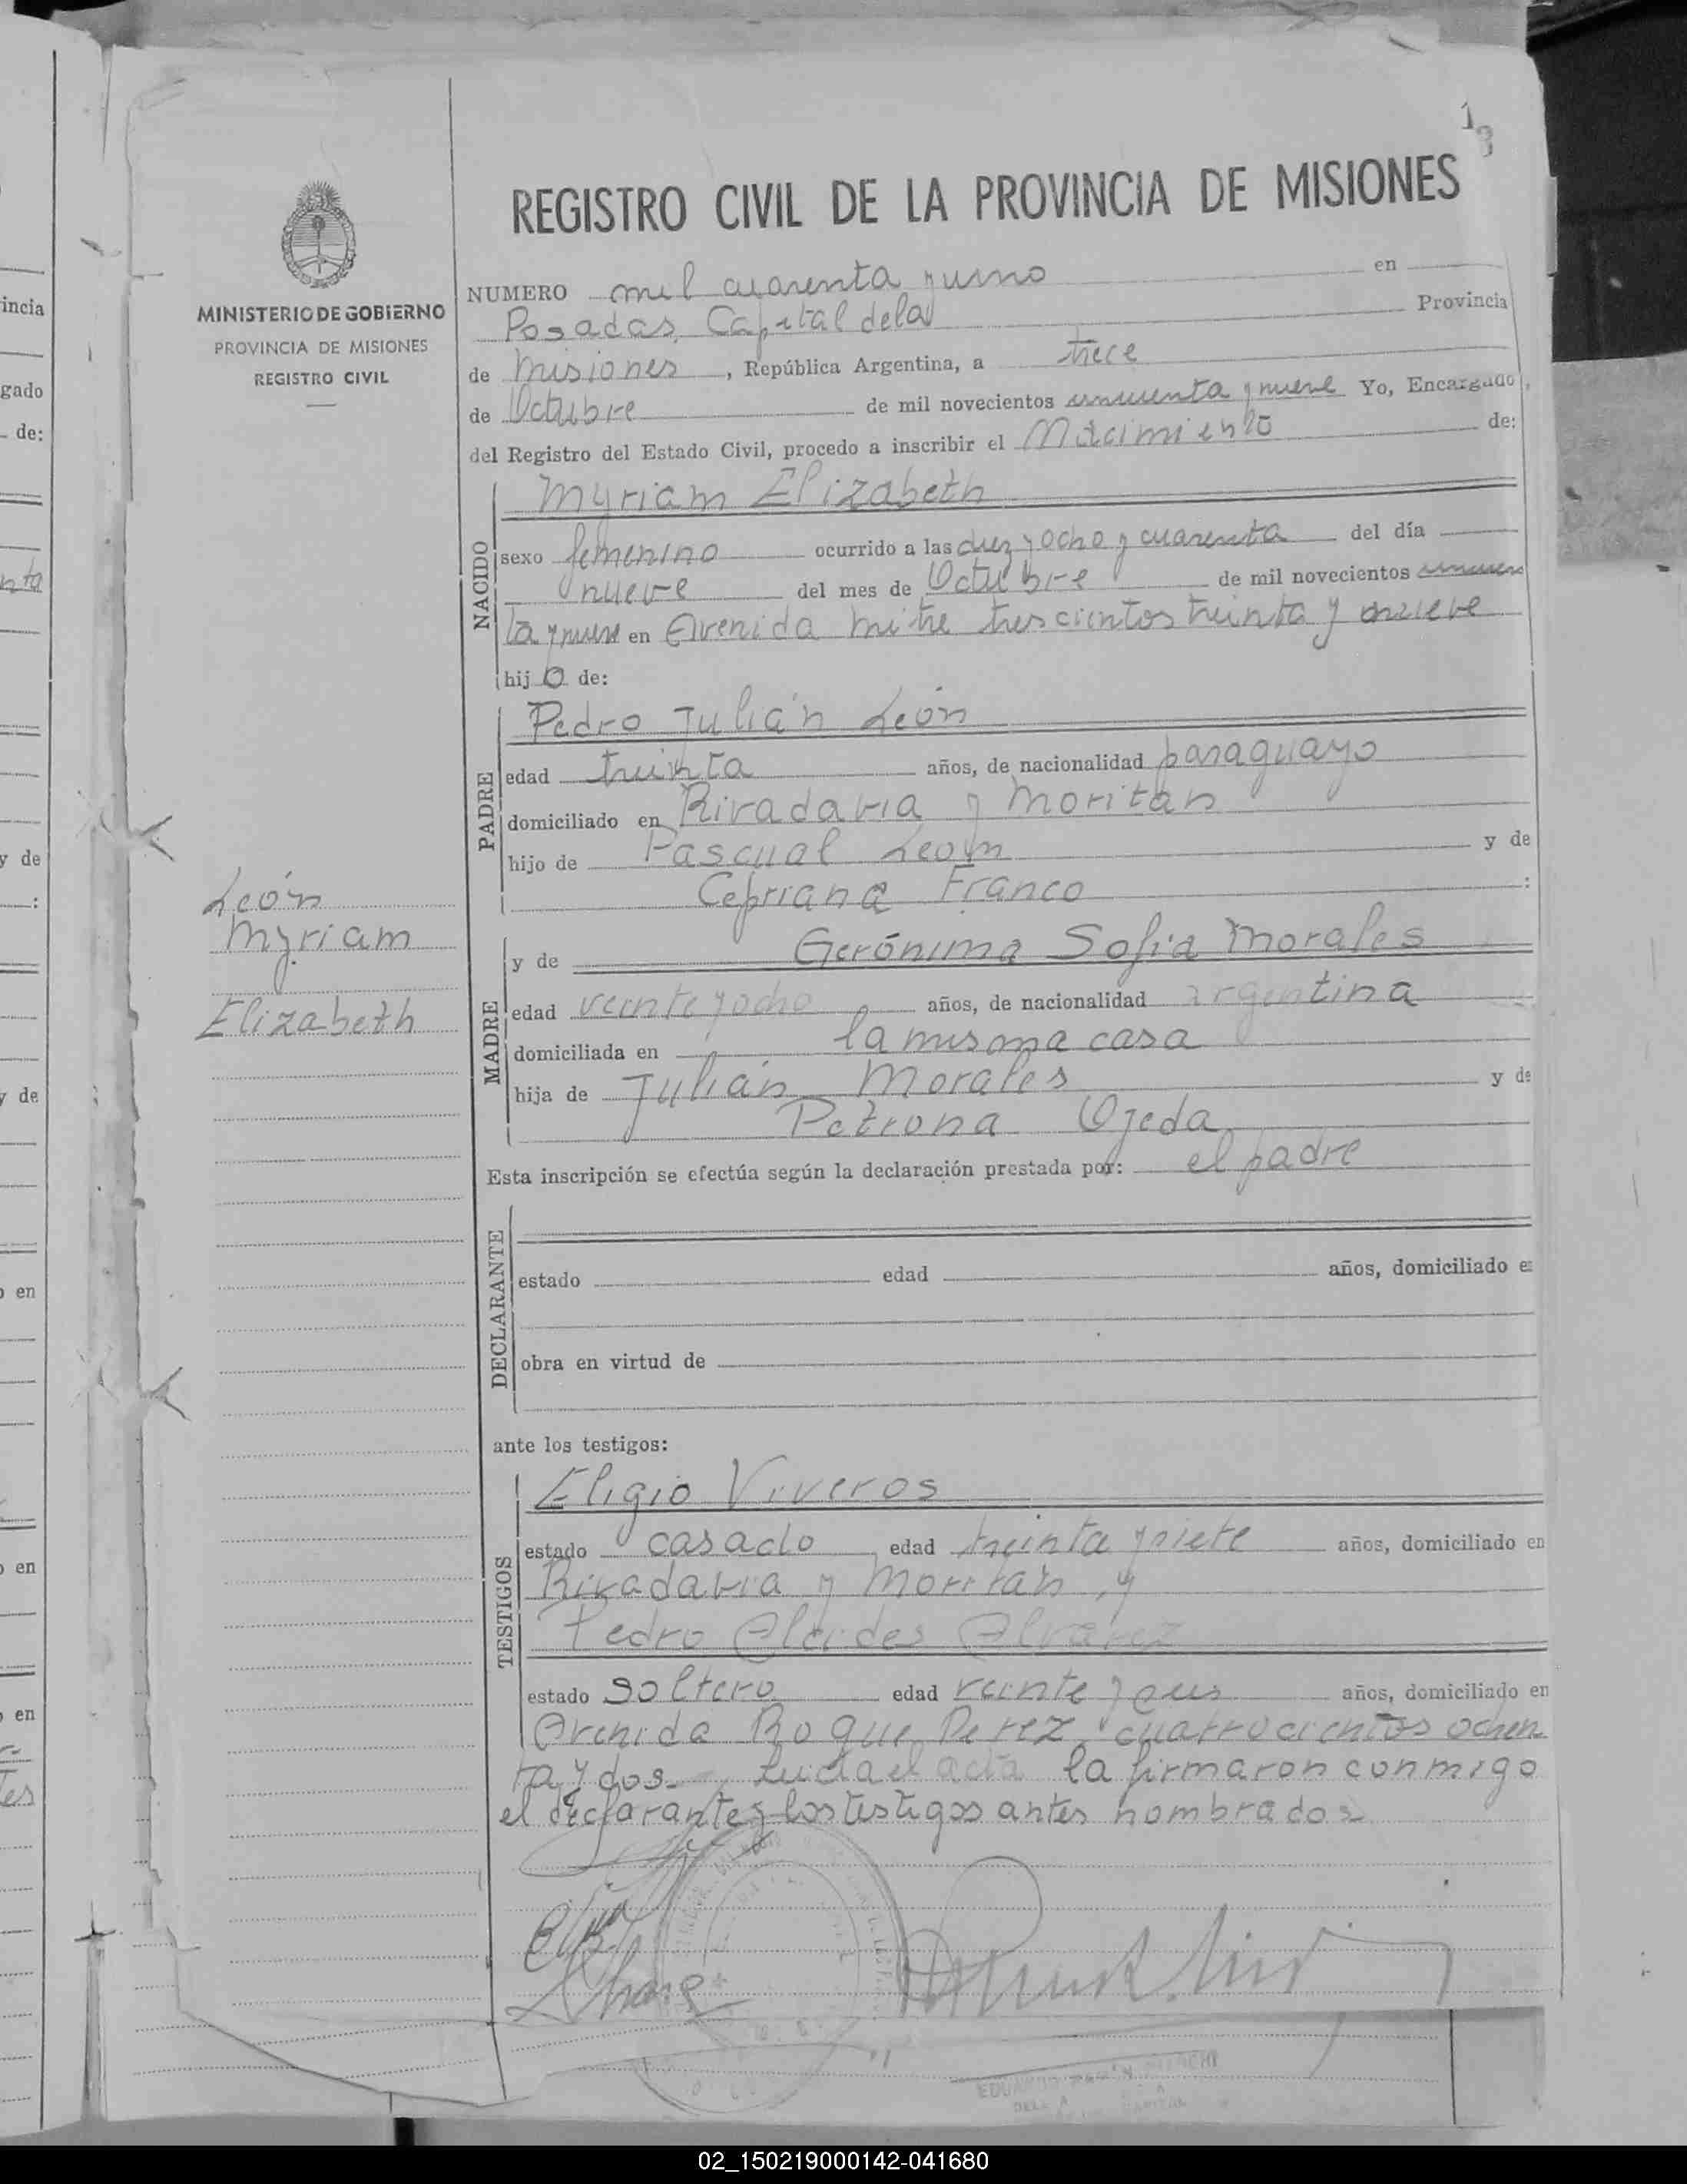 13
REGISTRO CIVIL DE LA PROVINCIA DE MISIONES
MINISTERIO DE GOBIERNO
PROVINCIA DE MISIONES
REGISTRO CIVIL
NUMERO mil cuarenta y uno en
Posadas, Capital de la Provincia
de Misiones, República Argentina, a trece
de Octubre de mil novecientos cincuenta y nueve Yo, Encargado,
del Registro del Estado Civil, procedo a inscribir el Nacimiento de:
NACIDO
Myriam Elizabeth
sexo femenino ocurrido a las diez y ocho y cuarenta del día
nueve del mes de Octubre de mil novecientos cincuen
ta y nueve en Avenida Mitre trescientos treinta y nueve
hijo de:
PADRE
Pedro Julián León
edad treinta años, de nacionalidad paraguayo
domiciliado en Rivadavia y Moritán
hijo de Pascual León y de
Cepriana Franco :
León
Myriam
Elizabeth
MADRE
y de Gerónima Sofia Morales
edad veinte y ocho años, de nacionalidad argentina
domiciliada en la misma casa
hija de Julián Morales y de
Petrona Ojeda
Esta inscripción se efectúa según la declaración prestada por: el padre
DECLARANTE
estado edad años, domiciliado e
obra en virtud de
ante los testigos:
TESTIGOS
Eligio Viveros
estado casado edad treinta y siete años, domiciliado en
Rivadavia y Moritán, y
Pedro Alcides Alvarez
estado soltero edad veinte y años, domiciliado en
Avenida Roque Perez cuatrocientos ochen
ta y dos.- Leida el acta la firmaron conmigo
el declarante y los testigos antes nombrados
02_150219000142-041680